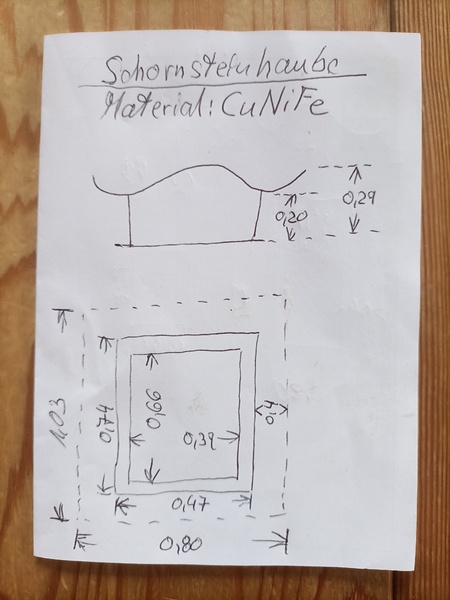 Schornsteinhaube
Material: CuNiFe
0,29
0,20
1,03
0,74
0,66
0,39
0,1
0,47
0,80